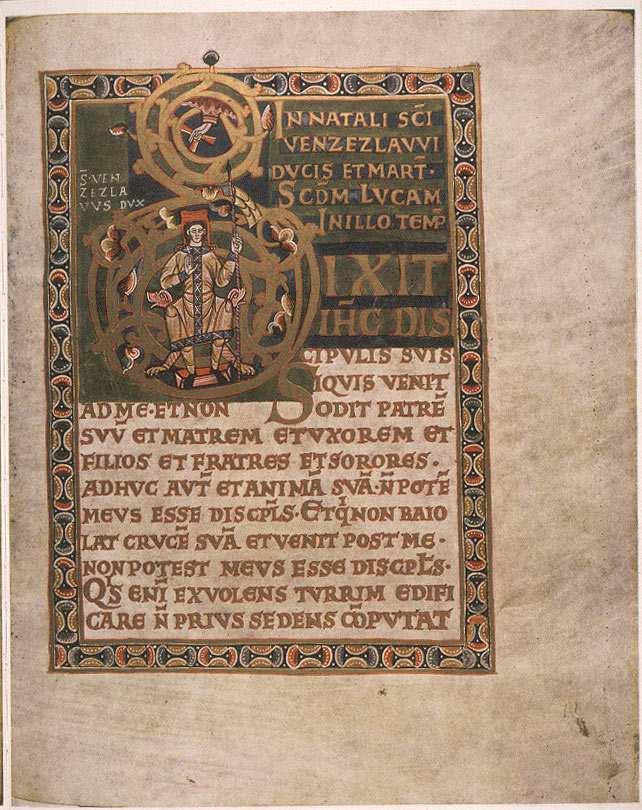 S̄·VEN
ZEZLA
VVS DVX
IN NATALI SC̄I
VENZEZLAVVI
DVCIS ET MART̄·
SCD̄M LVCAM
IN ILLO TEMP
DIXIT
IH̄C DIS
CIPVLIS SVIS
SIQVIS VENIT
AD ME·ET NON ODIT PATRĒ
SVV̄ ET MATREM ET VXOREM ET
FILIOS ET FRATRES ET SORORES·
ADHVC AVT̄ ET ANIMĀ SVĀ·N̄ POTĒ
MEVS ESSE DISCPL̄S·ETQͥ NON BAIO
LAT CRVCĒ SVĀ ET VENIT POST ME·
NON POTEST MEVS ESSE DISCPL̄S·
QͥS ENĪ EX VOLENS TVRRIM EDIFI
CARE N̄ PRIVS SEDENS CŌPVTAT